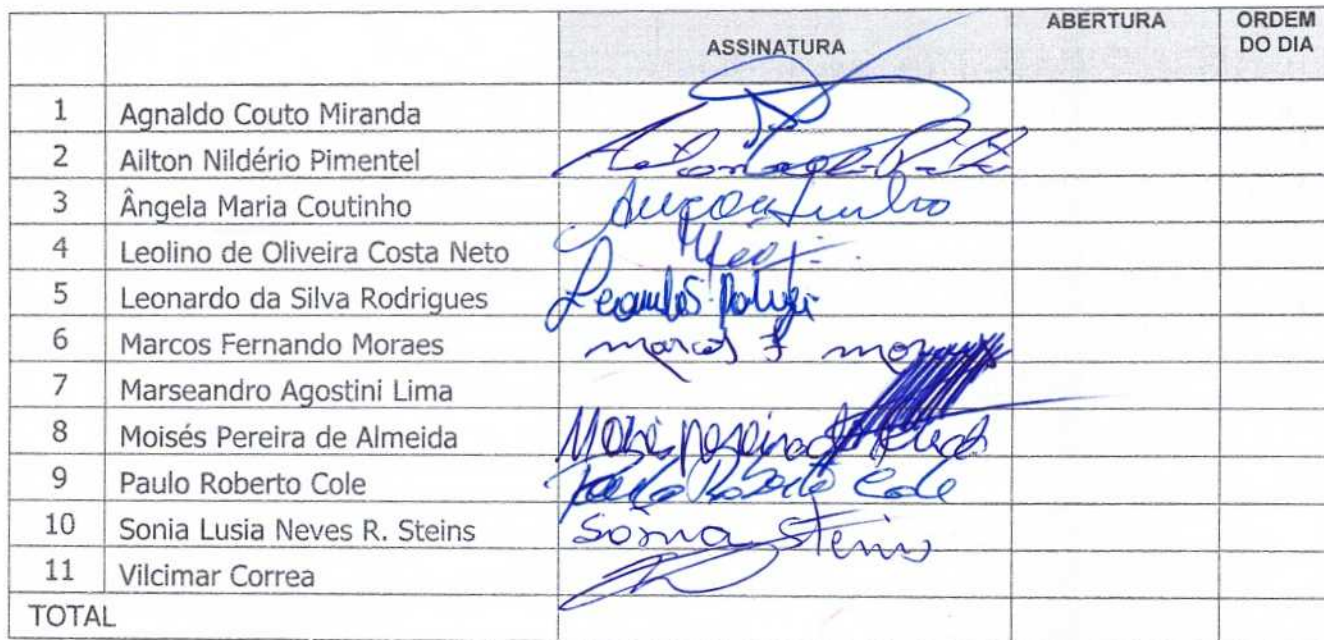 ASSINATURA ABERTURA ORDEM DO DIA
1 Agnaldo Couto Miranda
2 Ailton Nildério Pimentel
3 Ângela Maria Coutinho
4 Leolino de Oliveira Costa Neto
5 Leonardo da Silva Rodrigues
6 Marcos Fernando Moraes marcos F moraes
7 Marseandro Agostini Lima
8 Moisés Pereira de Almeida
9 Paulo Roberto Cole Paulo Roberto Cole
10 Sonia Lusia Neves R. Steins Sonia Steins
11 Vilcimar Correa
TOTAL